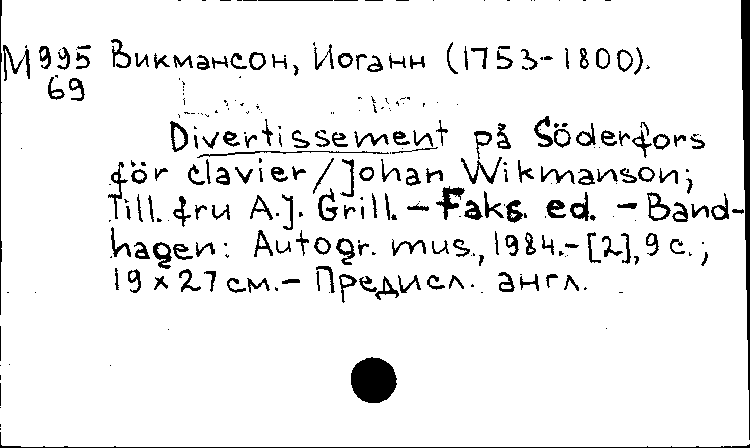 М995 Викмансон, Иоганн (1753-1800).
69
Divertissement på Söderfors
för clavier/Johan Wikmanson;
Till. fru A.J. Grill. – Faks. ed. – Band-
hagen: Autogr. mus., 1984.- [2], 9 с.;
19 x 27 см.– Предисл. англ.